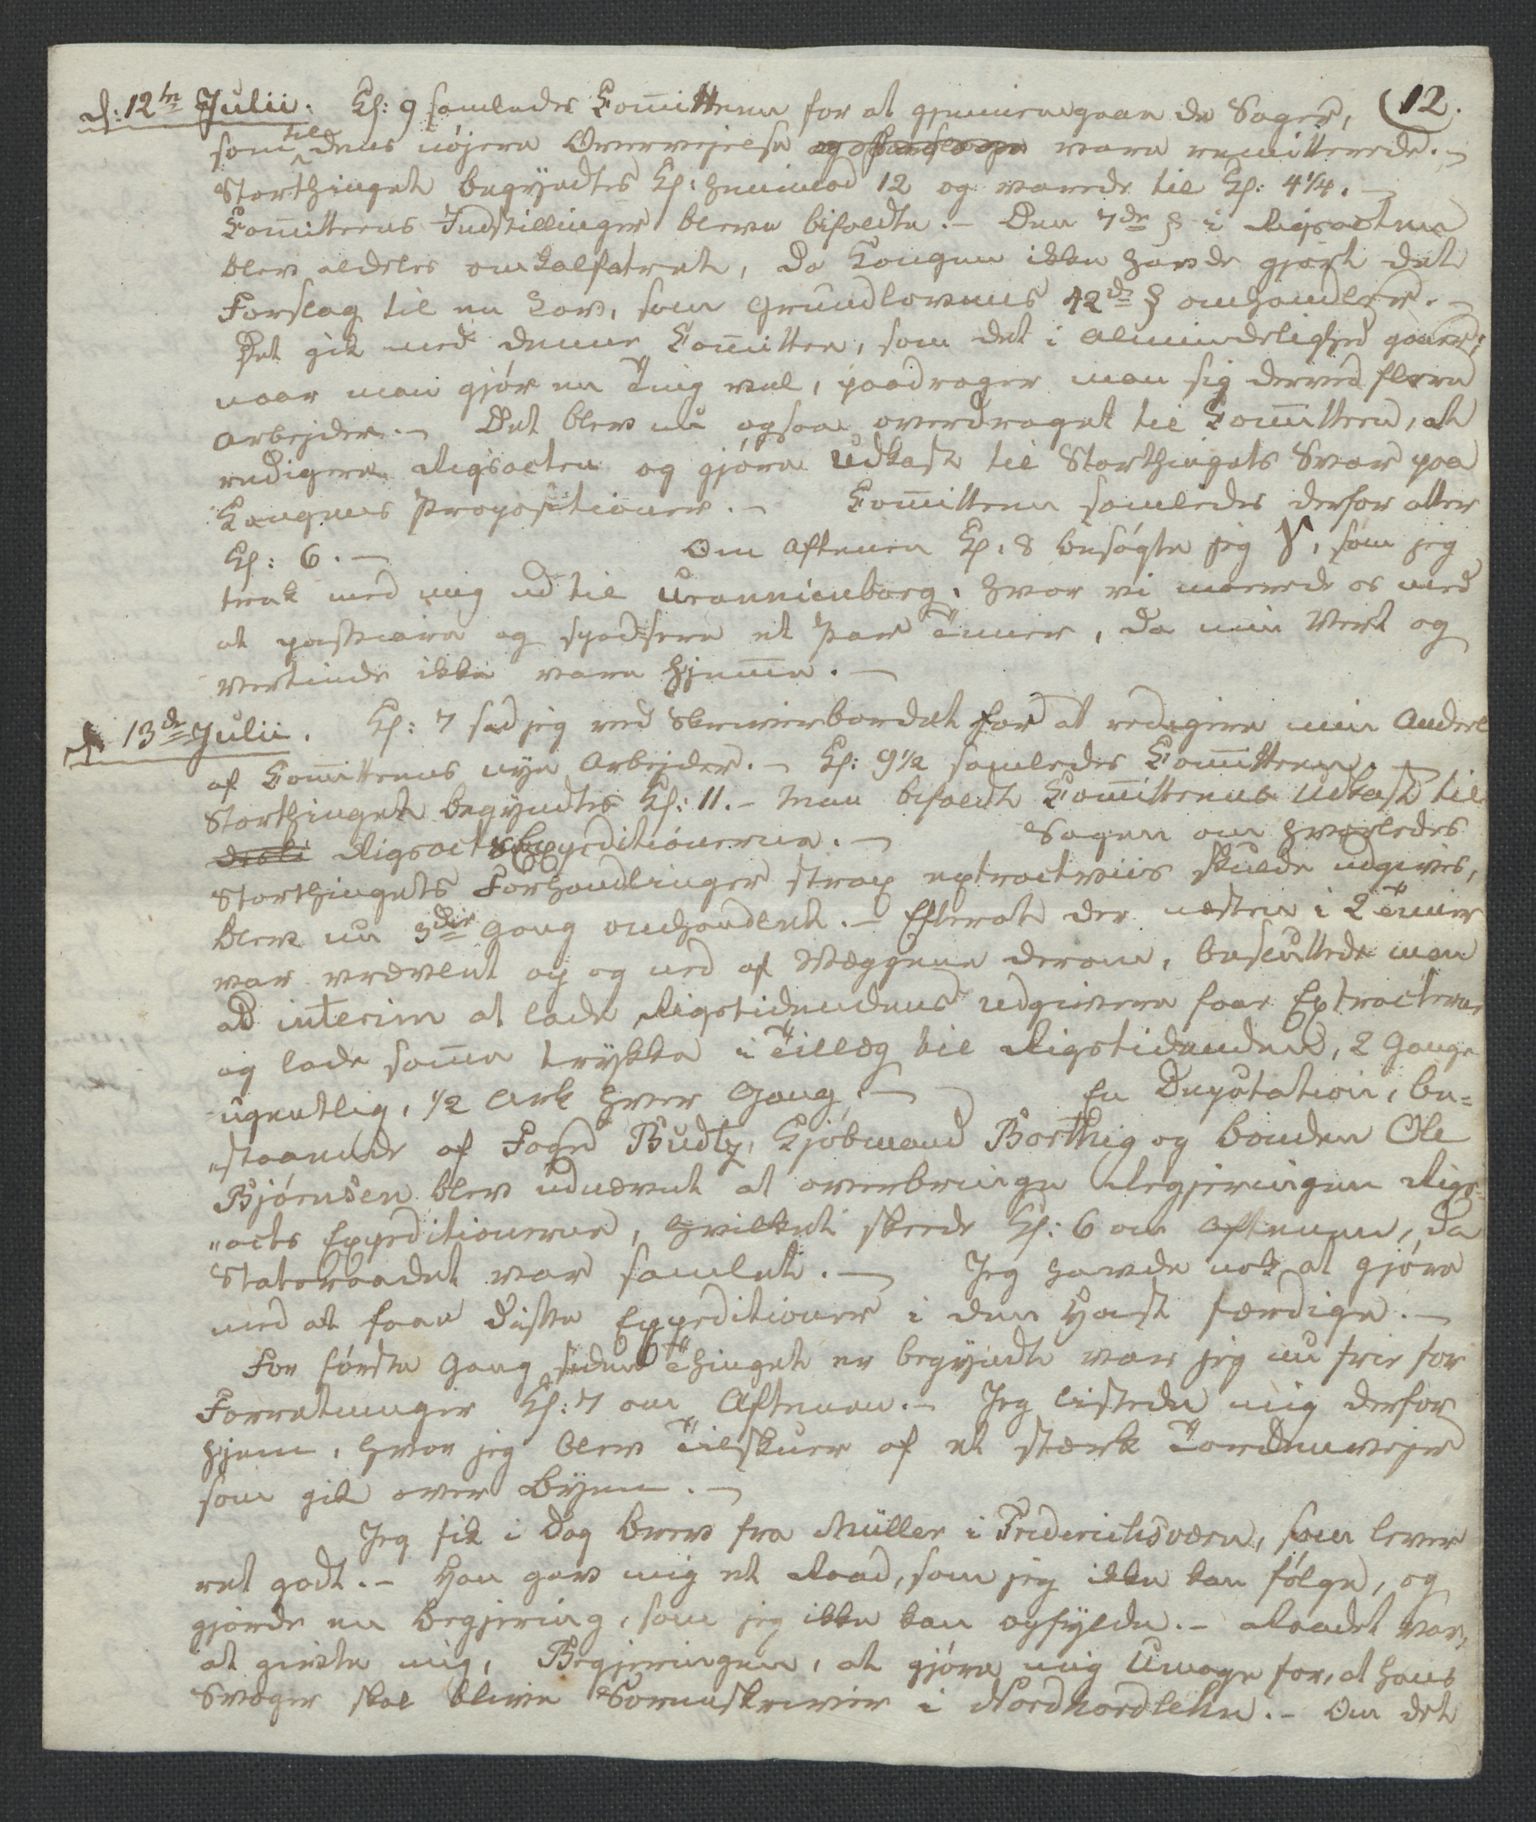 12.
d: 12te Julii. Kl: 9 samledes Committeen for at gjennemgaae de Sager,
som til dens nøjere Overvejelse vare remitterede. –
Storthinget begyndtes Kl: henimod 12 og varede til Kl: 4 1/4. –
Committeens Indstillinger bleve bifaldte. – Den 7de § i Rigsacten
blev aldeles omkalfatret, da Kongen ikke havde gjort det
Forslag til en Lov, som Grundlovens 42de § omhandler. –
Det gik med denne Committee, som det i Almindelighed gaaer;
naar man gjør en Ting vel, paadrager man sig derved flere
Arbejder. – Det blev nu ogsaa overdraget til Committeen, at
redigere Rigsacten og gjøre Udkast til Storthingets Svar paa
Kongens Propositioner. – Committeen samledes derfor atter
Kl: 6. – Om Aftenen Kl: 8 besøgte jeg , som jeg
trak med mig ud til Uranienborg, hvor vi morede os med
at passiare og spadsere et Par Timer, da min Vert og
Vertinde ikke vare hjemme. –
d. 13de Julii. Kl: 7 sad jeg ved Skriverbordet for at redigere min Andeel
af Committeens nye Arbejder. – Kl: 9 1/2 samledes Committeen. –
Storthinget begyndtes Kl: 11. – Man bifaldt Committeens Udkast til
Rigsacts Expeditionerne. – Sagen om hvorledes
Storthingets Forhandlinger strax extractviis skulde udgives,
blev nu 3die Gang omhandlet. – Efterat der næsten i 2 Timer
var vrævlet op og ned af Væggene derom, besluttede man
ad interim at lade Rigstidendens Udgivere faae Extracterne
og lade samme trykke i Tillæg til Rigstidenden, 2 Gange
ugentlig, 1/2 Ark hver Gang. – En Deputation, be=
"staaende af Foged Budtz, Kjøbmand Borthig og Bonden Ole
Bjørnsen blev udnævnt at overbringe Regjeringen Rigs=
"acts Expeditionerne, hvilket skeede Kl: 6 om Aftenen, da
Statsraadet var samlet. – Jeg havde nok at gjøre
med at faae disse Expeditioner i den Hast færdige. –
For første Gang siden Thinget er begyndt var jeg nu frie for
Forretninger Kl: 7 om Aftenen. – Jeg listede mig derfor
hjem, hvor jeg blev Tilskuer af et stærk Tordenvejr
som gik over Byen. –
Jeg fik i Dag Brev fra Müller i Friderichsværn, som lever
ret godt. – Han gav mig et Raad, som jeg ikke kan følge, og
gjorde en Begjering, som jeg ikke kan opfylde. – Raadet var,
at givte mig, Begjeringen, at gjøre mig Umage for, at hans
Svoger skal blive Sorenskriver i Nordhordlehn. – Om det